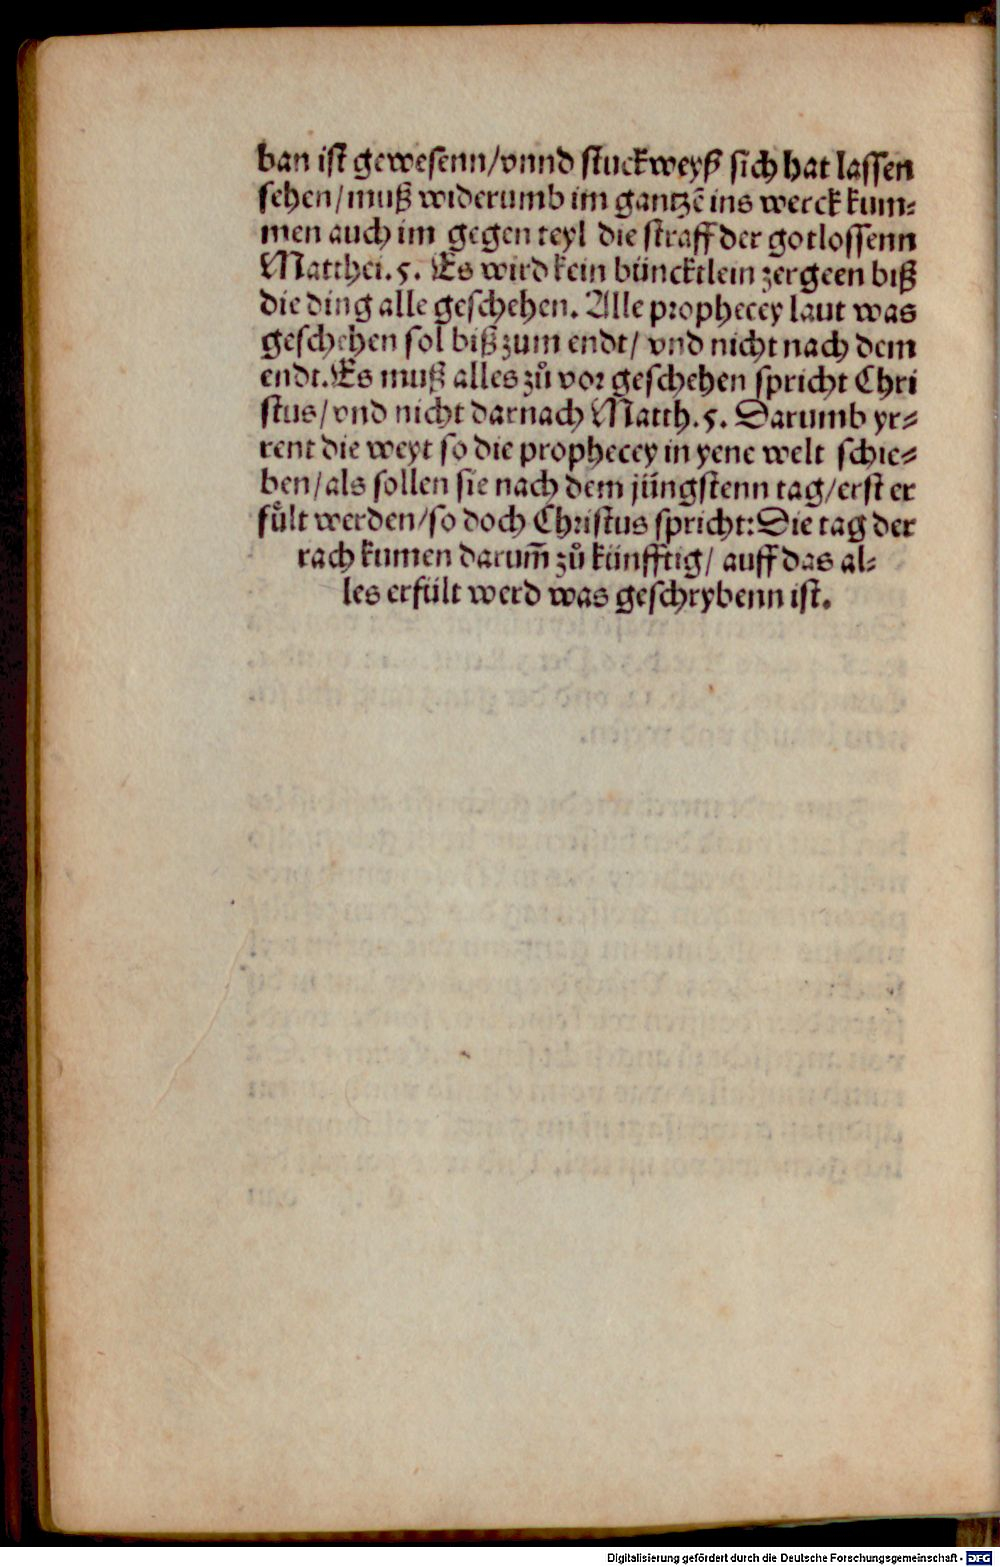 ban ist gewesenn/vnnd stuckweyß sich hat lassen
sehen/muß widerumb im gantzẽ ins werck kum⸗
men auch im gegen teyl die straff der gotlossenn
Matthei. 5. Es wird kein bünctlein zergeen biß
die ding alle geschehen. Alle prophecey laut was
geschehen sol biß zum endt/ vnd nicht nach dem
endt. Es muß alles zů vor geschehen spricht Chri
stus/vnd nicht darnach Matth. 5. Darumb yr⸗
rent die weyt so die prophecey in yene welt schie⸗
ben/als sollen sie nach dem jüngstenn tag/erst er
fült werden/so doch Christus spricht: Die tag der
rach kumen darum̃ zů künfftig/ auff das al⸗
les erfült werd was geschrybenn ist.
Digitalisierung gefördert durch die Deutsche Forschungsgemeinschaft - DFG